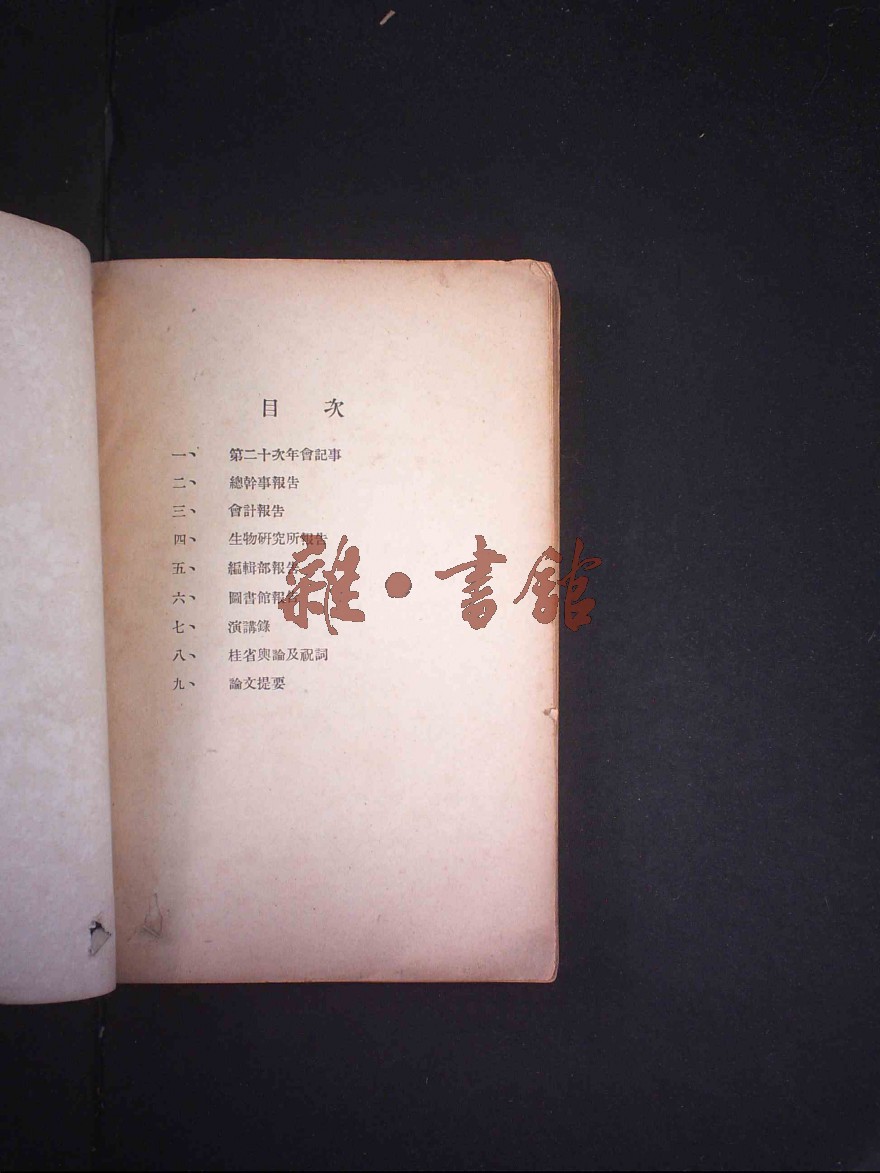 目 次
一、 第二十次年會記事
二、 總幹事報告
三、 會計報告
四、 生物研究所報告
五、 編輯部報告
六、 圖書館報告
七、 演講錄
八、 桂省輿論及祝詞
九、 論文提要
雜·書館